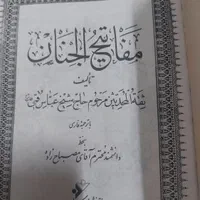 مفاتیح الجنان
تألیف
ثقة المحدثین مرحوم حاج شیخ عباس قمی
با ترجمه فارسی
بخط
دانشمند محترم آقای مصباح زاده